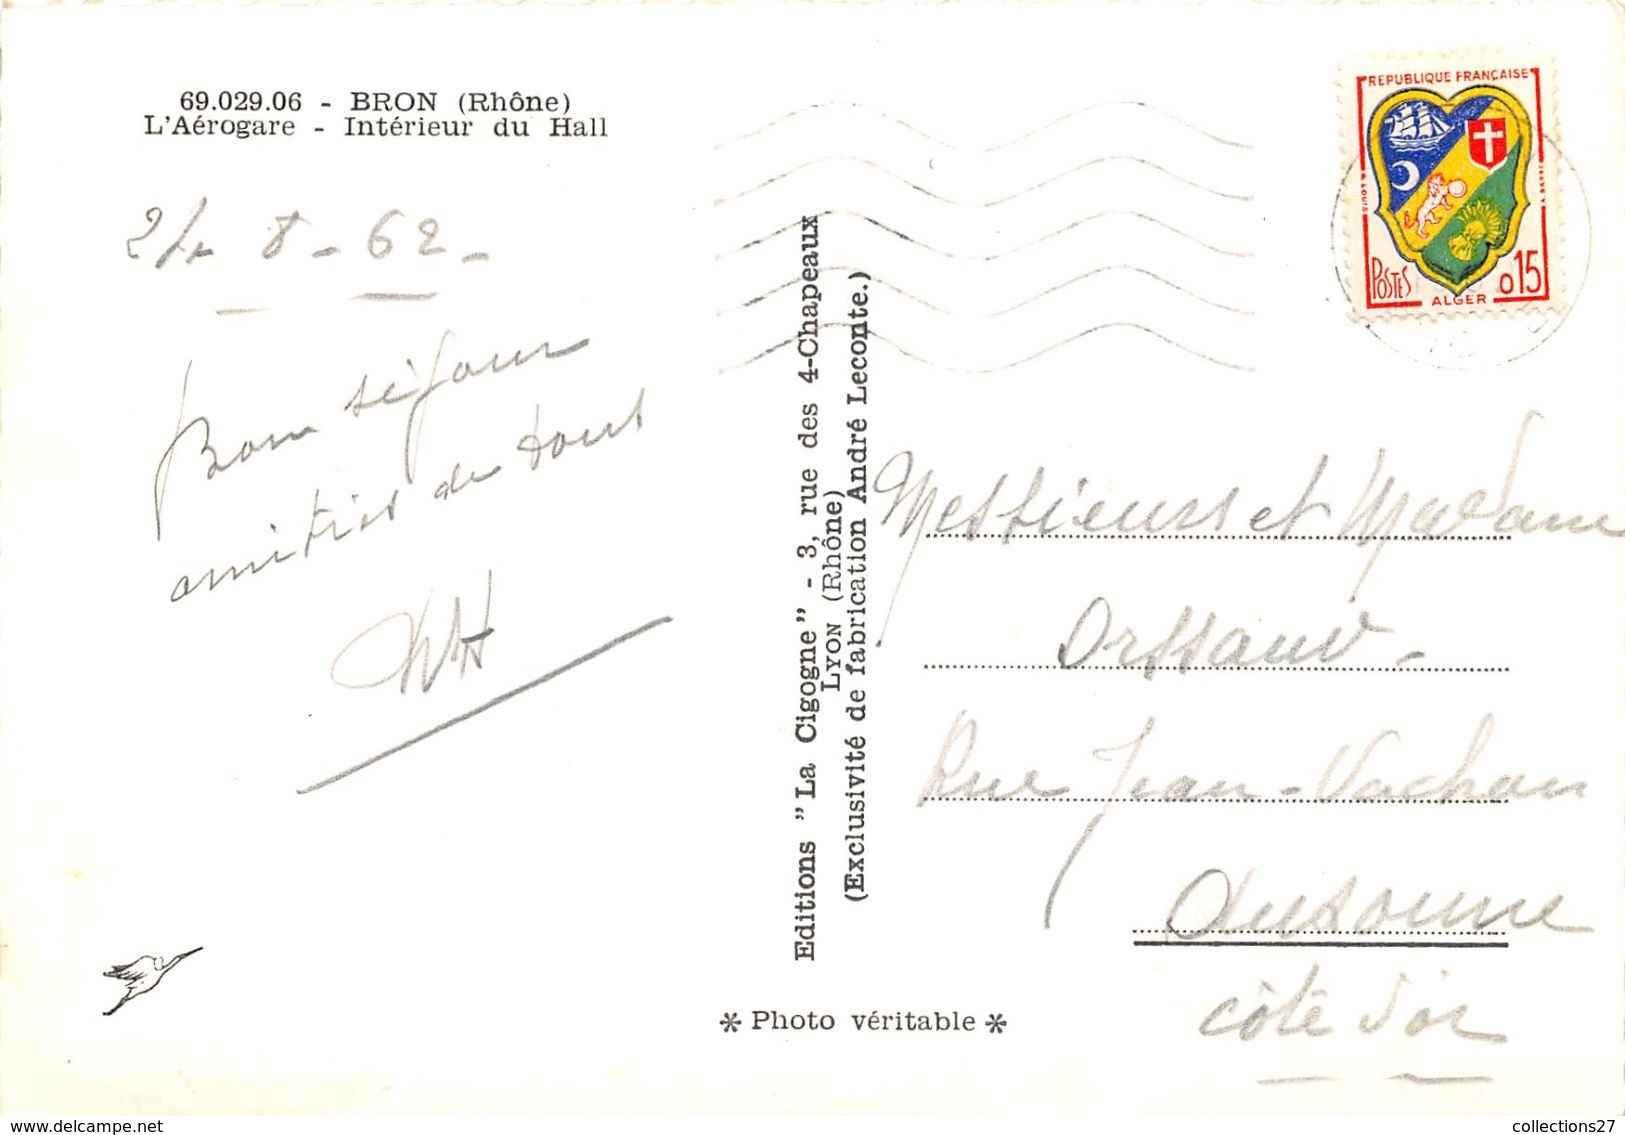 69.029.06 - BRON (Rhône)
L'Aérogare - Intérieur du Hall
24 - 8 - 62 -
Bon séjour
amitiés de tous
Editions "La Cigogne" - 3, rue des 4-Chapeaux
LYON (Rhône)
(Exclusivité de fabrication André Leconte.)
REPUBLIQUE FRANÇAISE
POSTES
ALGER
0,15
Messieurs et Madame
Rue Jean-Vachon
Auxonne
Côte d'or
* Photo véritable *
delcampe.net
collections27